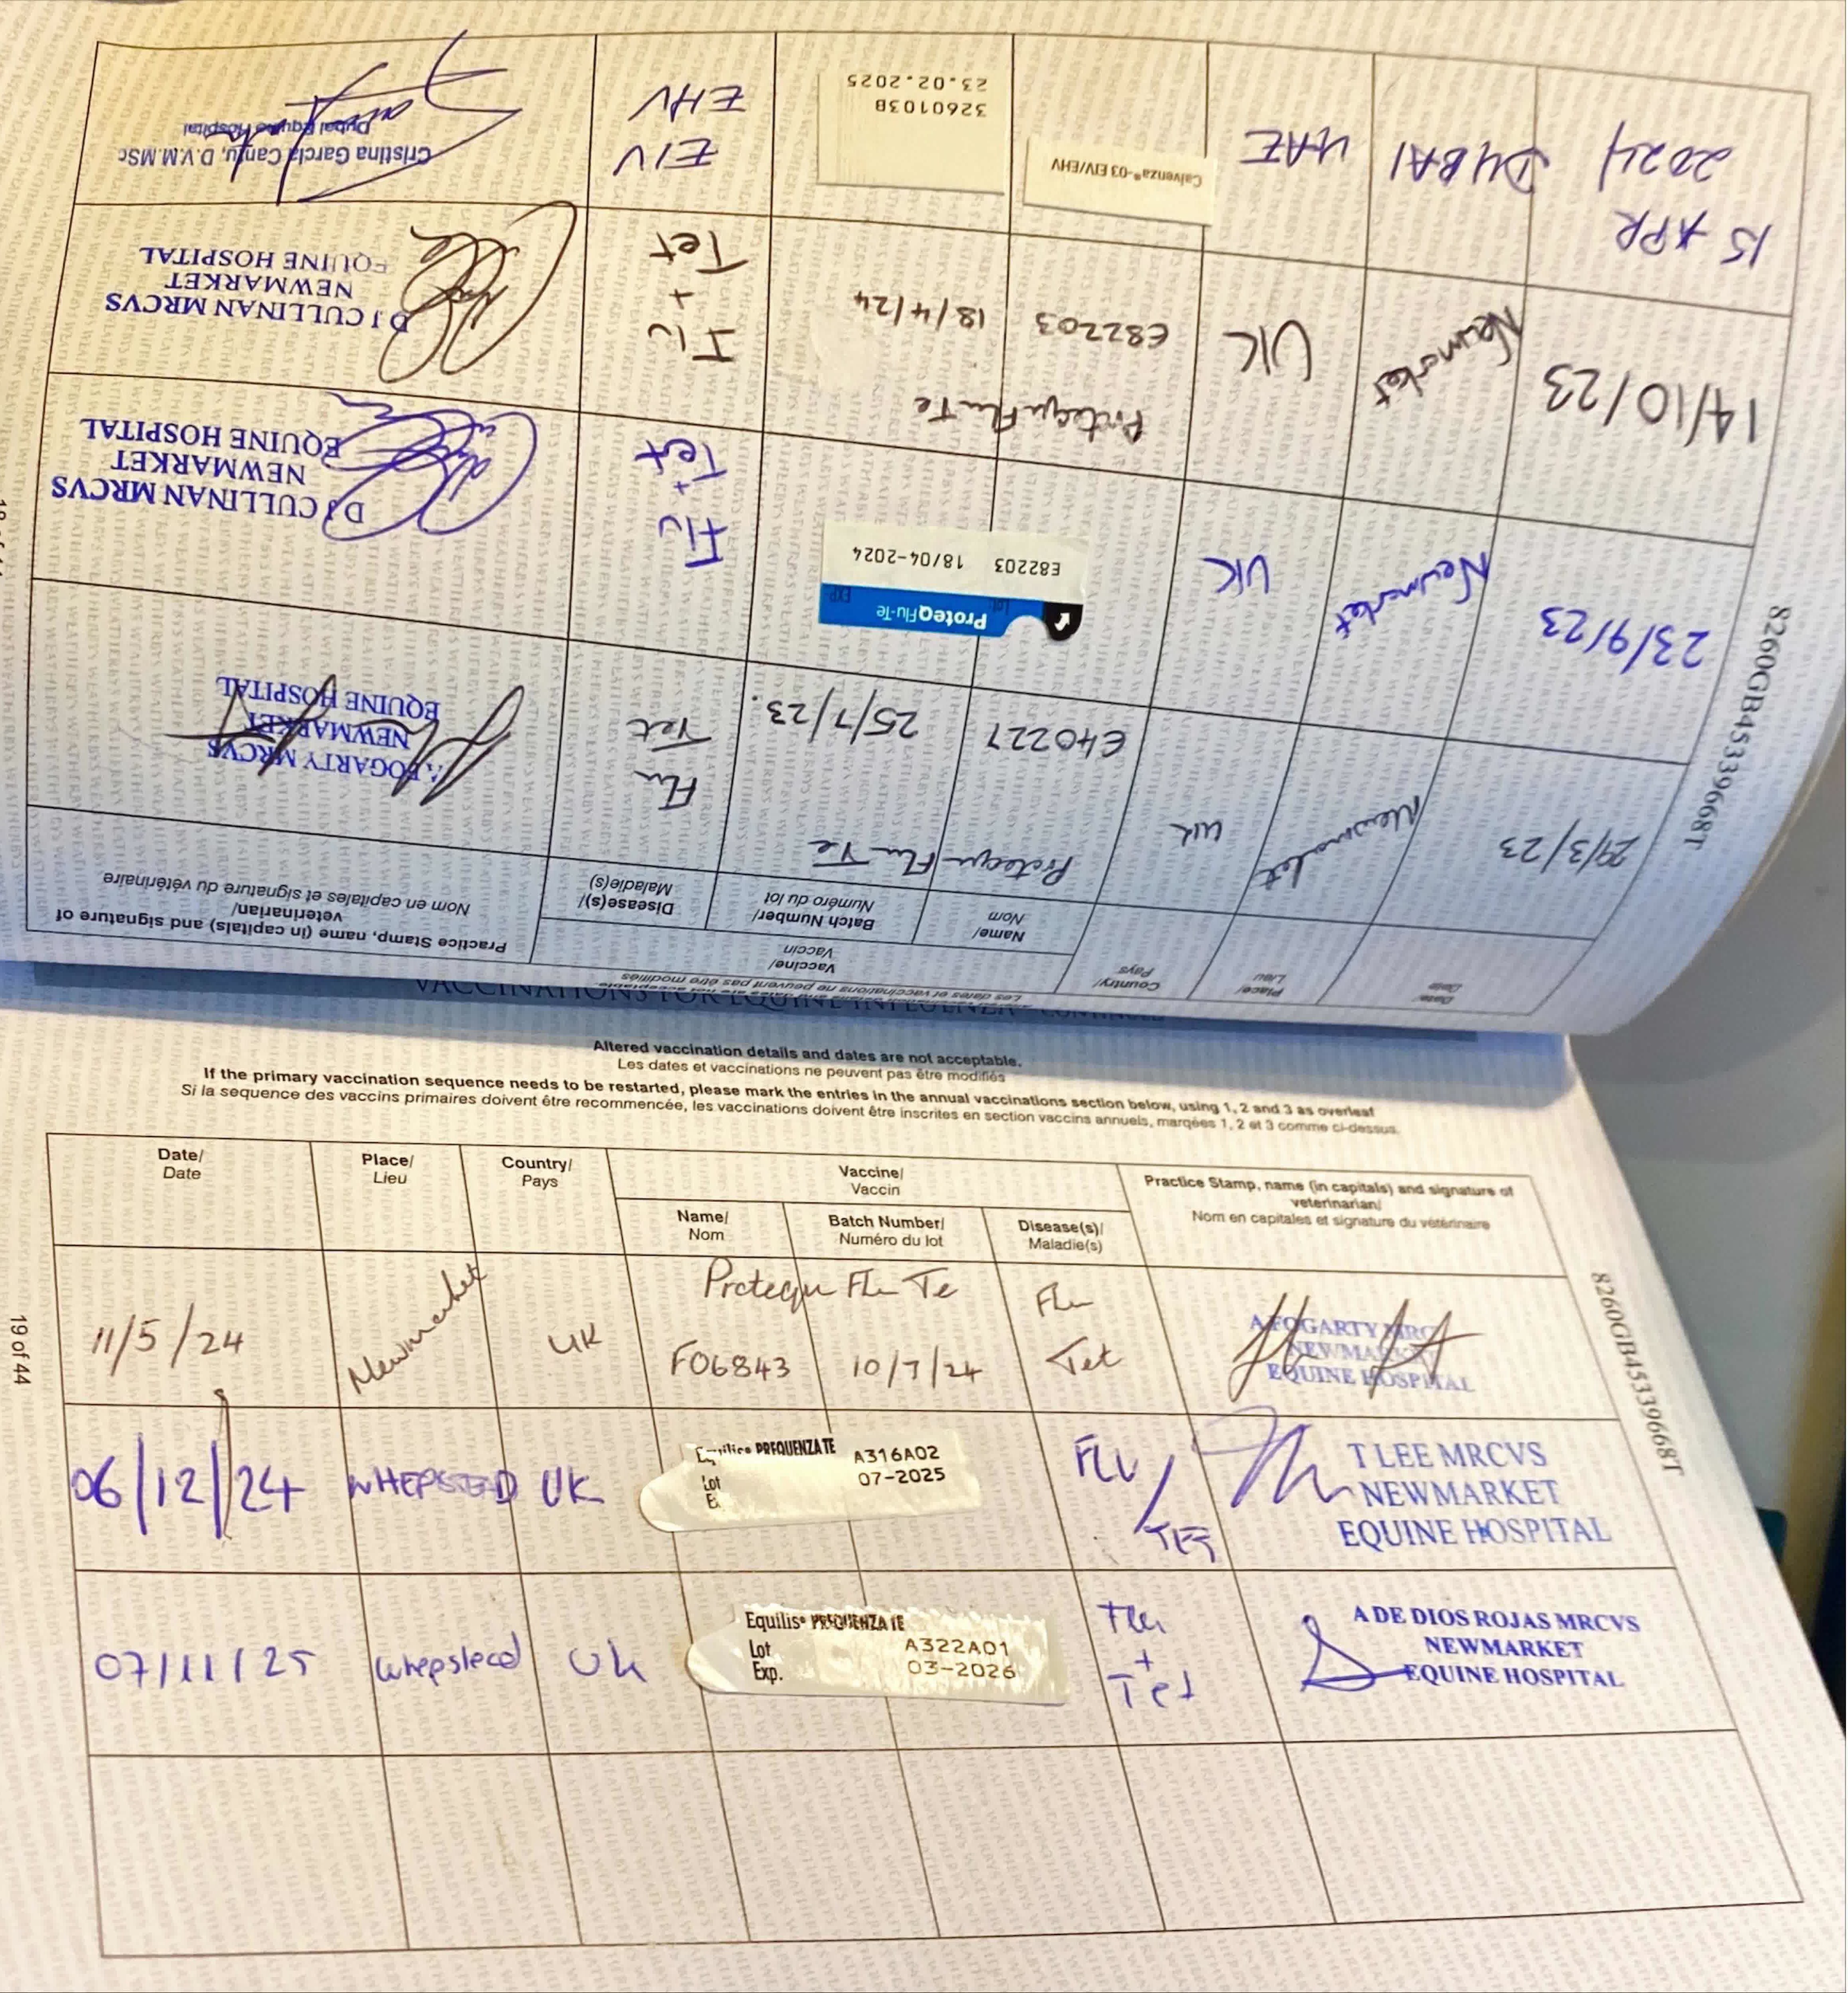 8260GB45339668T
Les dates et vaccinations ne peuvent pas être modifiés
Date/
Date
Place/
Lieu
Country/
Pays
Vaccine/
Vaccin
Name/
Nom
Batch Number/
Numéro du lot
Disease(s)/
Maladie(s)
Practice Stamp, name (in capitals) and signature of
veterinarian/
Nom en capitales et signature du vétérinaire
29/3/23
Newmarket
UK
Protequ Flu Te
E40227
25/7/23.
Flu
Tet
A FOGARTY MRCVS
NEWMARKET
EQUINE HOSPITAL
23/9/23
Newmarket
UK
ProteqFlu-Te
Lot
EXP
E82203 18/04-2024
Flu
+
Tet
D J CULLINAN MRCVS
NEWMARKET
EQUINE HOSPITAL
14/10/23
Newmarket
UK
Protequ Flu Te
E82203
18/4/24
Flu
+
Tet
D J CULLINAN MRCVS
NEWMARKET
EQUINE HOSPITAL
15 APR
2024
DUBAI
UAE
Calvenza®-03 EIV/EHV
3260103B
23.02.2025
EIV
EHV
Cristina García Cantu, D.V.M.MSc
Dubai Equine Hospital
VACCINATIONS FOR EQUINE INFLUENZA - CONTINUED
Altered vaccination details and dates are not acceptable.
Les dates et vaccinations ne peuvent pas être modifiés
If the primary vaccination sequence needs to be restarted, please mark the entries in the annual vaccinations section below, using 1, 2 and 3 as overleaf
Si la sequence des vaccins primaires doivent être recommencée, les vaccinations doivent être inscrites en section vaccins annuels, marqées 1, 2 et 3 comme ci-dessus.
Date/
Date
Place/
Lieu
Country/
Pays
Vaccine/
Vaccin
Name/
Nom
Batch Number/
Numéro du lot
Disease(s)/
Maladie(s)
Practice Stamp, name (in capitals) and signature of
veterinarian/
Nom en capitales et signature du vétérinaire
11/5/24
Newmarket
UK
Protequ Flu Te
F06843
10/7/24
Flu
Tet
A FOGARTY MRC
NEWMARKET
EQUINE HOSPITAL
06/12/24
WHEPSTEAD
UK
Equilis® PREQUENZA TE
Lot A316A02
07-2025
FLU/
TET
T LEE MRCVS
NEWMARKET
EQUINE HOSPITAL
07/11/25
Whepstead
UK
Equilis® PREQUENZA TE
Lot A322A01
Exp. 03-2026
Flu
+
Tet
A DE DIOS ROJAS MRCVS
NEWMARKET
EQUINE HOSPITAL
8260GB45339668T
19 of 44